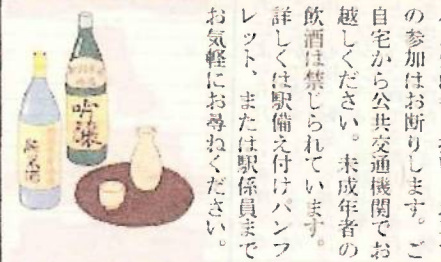 の参加はお断りします。ご
自宅から公共交通機関でお
越しください。未成年者の
飲酒は禁じられています。
詳しくは駅備え付けパンフ
レット、または駅係員まで
お気軽にお尋ねください。
吟醸
純米酒